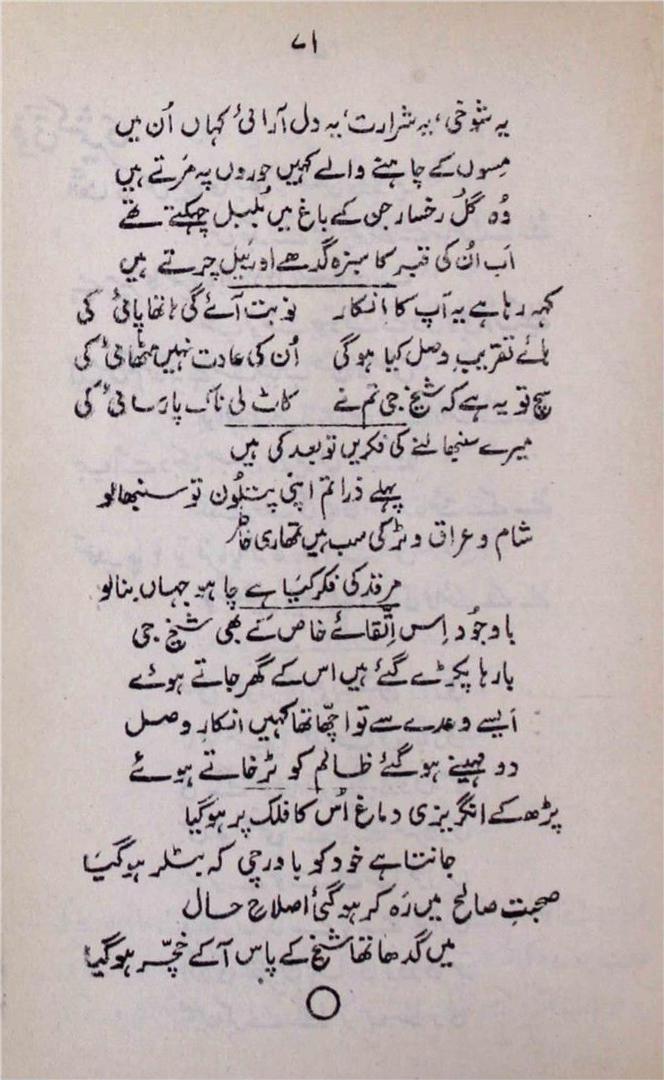 ۷۱
یہ شوخی، یہ شرارت، یہ دل آرائی کہاں اُن میں
مِسوں کے چاہنے والے کہیں حوروں پہ مَرتے ہیں
وُہ گُل رخسار جن کے باغ میں بُلبُل چہکتے تھے
اَب اُن کی قبر کا سبزہ گدھے اور بَیل چرتے ہیں
کہہ رہا ہے یہ آپ کا انکار نوبت آئے گی ہاتھا پائی کی
ہائے تقریبِ وصل کیا ہوگی اُن کی عادت نہیں مٹھائی کی
سچ تو یہ ہے کہ شیخ جی تم نے کاٹ لی ناک پارسائی کی
میرے سنبھالنے کی فکریں تو بعد کی ہیں
پہلے ذرا تم اپنی پتلُون تو سنبھالو
شام و عراق و ٹرکی سب ہیں تمھاری خاطر
مرقد کی فکر کیا ہے چاہو جہاں بنالو
باوجُود اِس اِتّقائے خاص کے بھی شیخ جی
بارہا پکڑے گئے ہیں اس کے گھر جاتے ہوئے
اَیسے وعدے سے تو اچھّا تھا کہیں انکارِ وصل
دو مہینے ہوگئے ظالم کو ٹرخاتے ہوئے
پڑھ کے انگریزی دماغ اُس کا فلک پر ہوگیا
جانتا ہے خود کو باورچی کہ بٹلر ہوگیا
صحبتِ صالح میں رَہ کر ہوگئی اصلاحِ حال
میں گدھا تھا شیخ کے پاس آکے خچّر ہوگیا